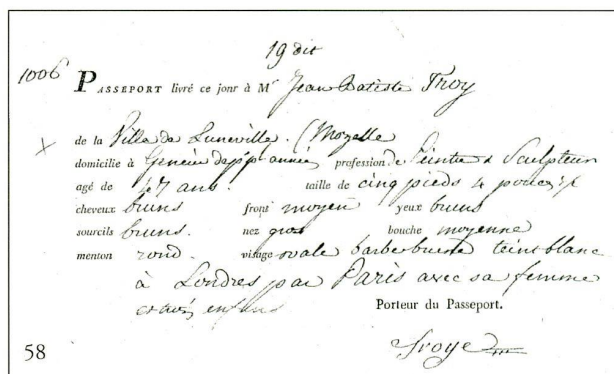 19 dit
1006 PASSEPORT livré ce jour à Mr Jean Batiste Troy
de la Ville de Luneville. (Mozelle
domicilié à Genève dep. année, profession de Peintre & Sculpteur
agé de 47 ans. taille de cinq pieds 4 pouces
cheveux bruns front moyen yeux bruns
sourcils bruns. nez gros bouche moyenne
menton rond. visage ovale barbe brune teint blanc
à Londres par Paris avec sa femme
et enfans Porteur du Passeport.
58 Troye